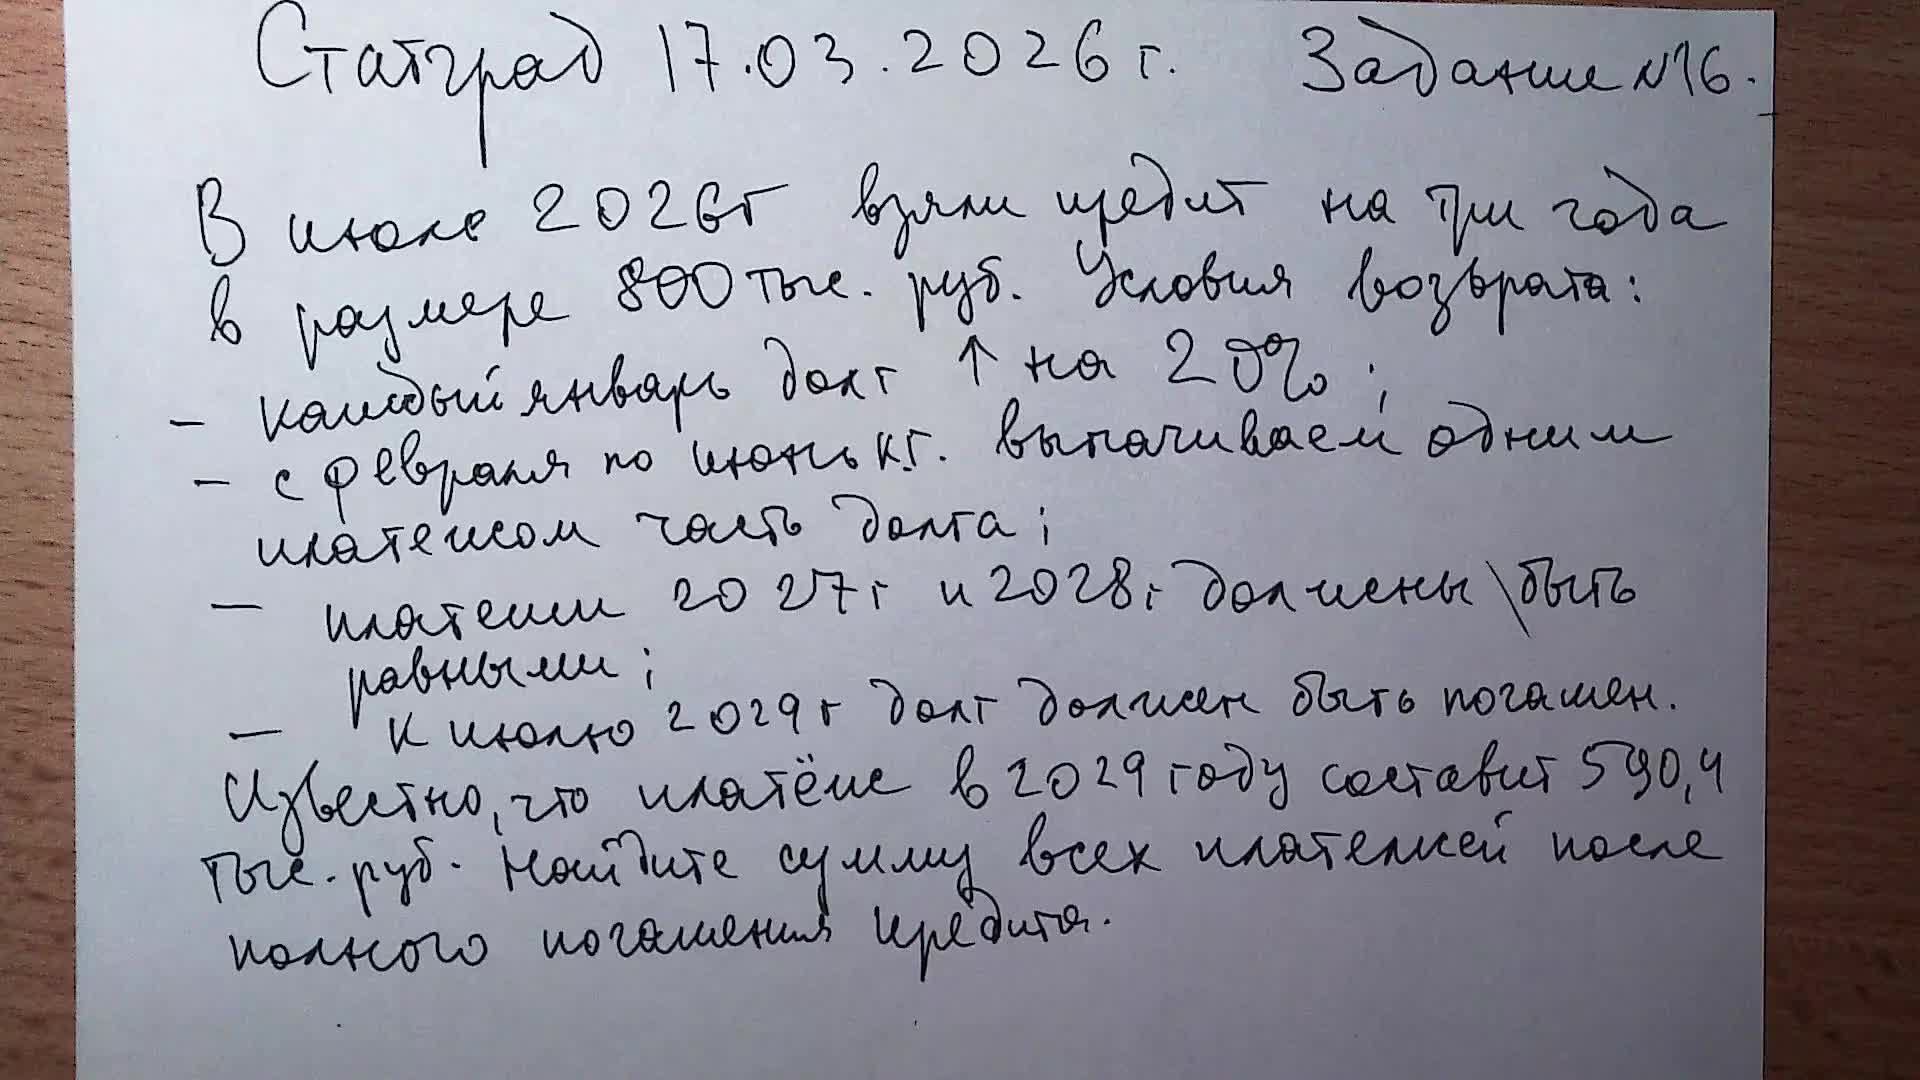 Статград 17.03.2026 г. Задание №16.
В июле 2026г взяли кредит на три года
в размере 800 тыс. руб. Условия возврата:
- каждый январь долг ↑ на 20%;
- с февраля по июнь к.г. выпачиваем одним
платежом часть долга;
- платежи 2027г и 2028г должены \ быть
равными;
- к июлю 2029г долг должен быть погашен.
Известно, что платёж в 2029 году составит 590,4
тыс. руб. Найдите сумму всех платежей после
полного погашения кредита.